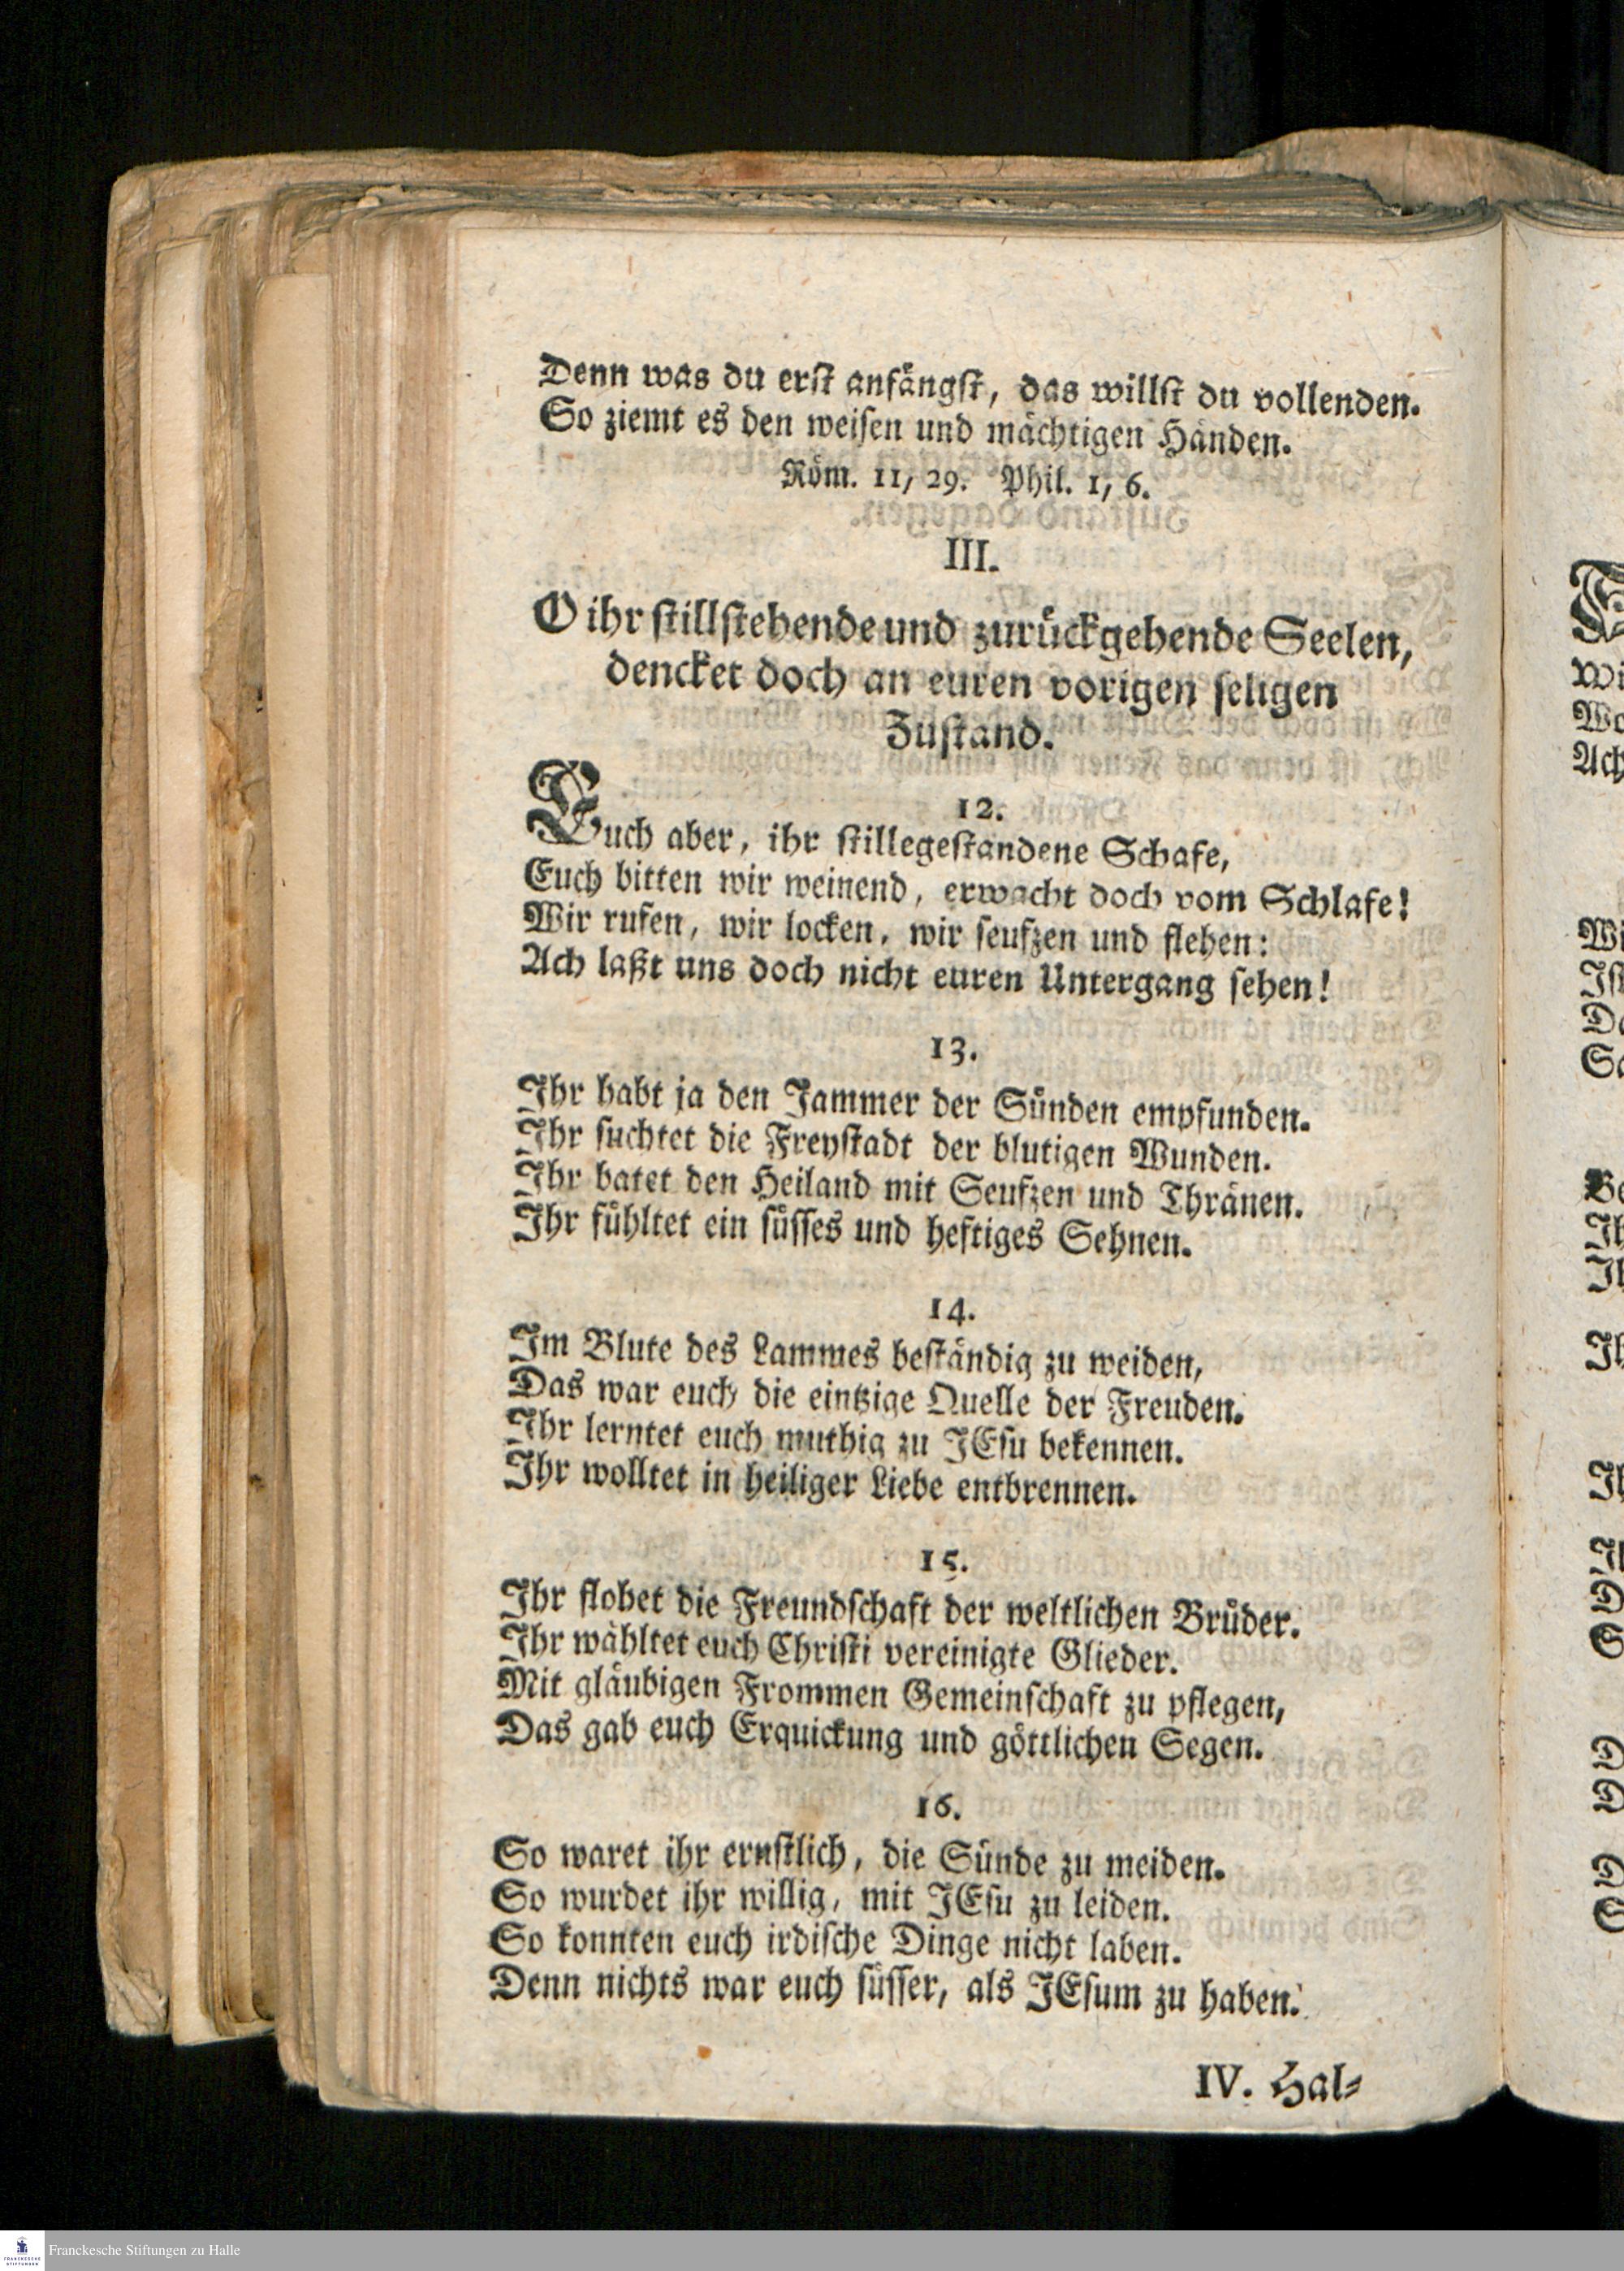 Denn was du erst anfängst, das willst du vollenden.
So ziemt es den weisen und mächtigen Händen.
Röm. 11, 29. Phil. 1, 6.
III.
O ihr stillstehende und zurückgehende Seelen,
dencket doch an euren vorigen seligen
Zustand.
12.
Euch aber, ihr stillegestandene Schafe,
Euch bitten wir weinend, erwacht doch vom Schlafe!
Wir rufen, wir locken, wir seufzen und flehen:
Ach laßt uns doch nicht euren Untergang sehen!
13.
Ihr habt ja den Jammer der Sünden empfunden.
Ihr suchtet die Freystadt der blutigen Wunden.
Ihr batet den Heiland mit Seufzen und Thränen.
Ihr fühltet ein süsses und heftiges Sehnen.
14.
Im Blute des Lammes beständig zu weiden,
Das war euch die eintzige Quelle der Freuden.
Ihr lerntet euch muthig zu JEsu bekennen.
Ihr wolltet in heiliger Liebe entbrennen.
15.
Ihr flohet die Freundschaft der weltlichen Brüder.
Ihr wähltet euch Christi vereinigte Glieder.
Mit gläubigen Frommen Gemeinschaft zu pflegen,
Das gab euch Erquickung und göttlichen Segen.
16.
So waret ihr ernstlich, die Sünde zu meiden.
So wurdet ihr willig, mit JEsu zu leiden.
So konnten euch irdische Dinge nicht laben.
Denn nichts war euch süsser, als JEsum zu haben.
IV. Hal-
Franckesche Stiftungen zu Halle